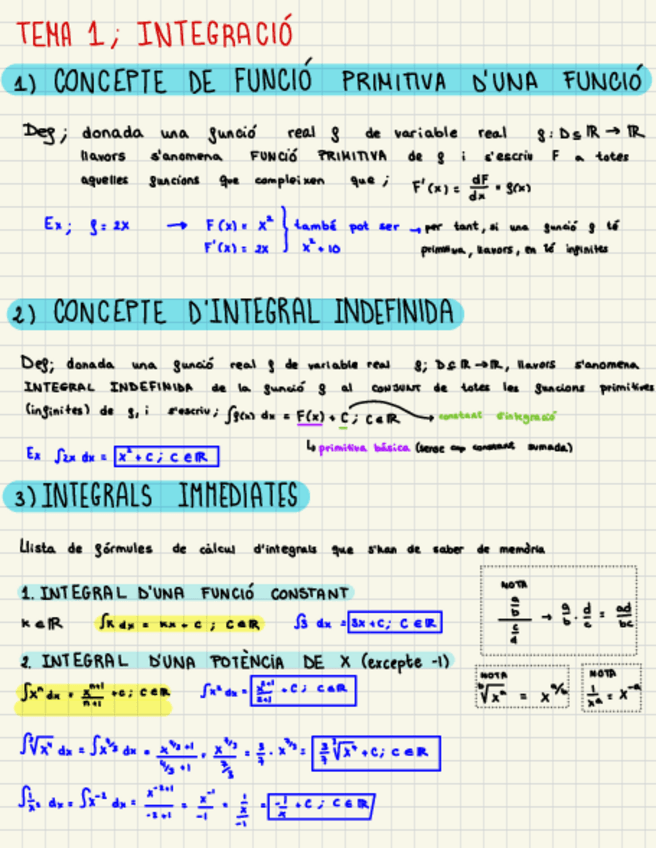 TEMA 1; INTEGRACIÓ
1) CONCEPTE DE FUNCIÓ PRIMITIVA D'UNA FUNCIÓ
Def; donada una funció real f de variable real f: D⊆ℝ → ℝ
llavors s'anomena FUNCIÓ PRIMITIVA de f i s'escriu F a totes
aquelles funcions que compleixen que; F'(x) = dF/dx = f(x)
Ex; f = 2x → F(x) = x² } també pot ser → per tant, si una funció f té
F'(x) = 2x } x² + 10 primitiva, llavors, en té infinites
2) CONCEPTE D'INTEGRAL INDEFINIDA
Def; donada una funció real f de variable real f; D⊆ℝ→ℝ, llavors s'anomena
INTEGRAL INDEFINIDA de la funció f al CONJUNT de totes les funcions primitives
(infinites) de f, i s'escriu; ∫f(x) dx = F(x) + C; C∈ℝ → constant d'integració
↳ primitiva bàsica (sense cap constant sumada)
Ex ∫2x dx = x² + C; C∈ℝ
3) INTEGRALS IMMEDIATES
Llista de fórmules de càlcul d'integrals que s'han de saber de memòria
1. INTEGRAL D'UNA FUNCIÓ CONSTANT
K∈ℝ ∫K dx = Kx + C; C∈ℝ ∫3 dx = 3x + C; C∈ℝ
NOTA
(a/b)/(c/d) → a/b · d/c = ad/bc
2. INTEGRAL D'UNA POTÈNCIA DE X (excepte -1)
∫xⁿ dx = xⁿ⁺¹/n+1 + C; C∈ℝ ∫x² dx = x²⁺¹/2+1 + C; C∈ℝ
NOTA
ᵇ√xᵃ = x^a/b
NOTA
1/xᵃ = x⁻ᵃ
∫³√x⁴ dx = ∫x^4/3 dx = x^4/3+1 / 4/3+1 = x^7/3 / 7/3 = 3/7 · x^7/3 = 3/7 ³√x⁷ + C; C∈ℝ
∫1/x² dx = ∫x⁻² dx = x⁻²⁺¹/-2+1 = x⁻¹/-1 = 1/x / -1 = -1/x + C; C∈ℝ